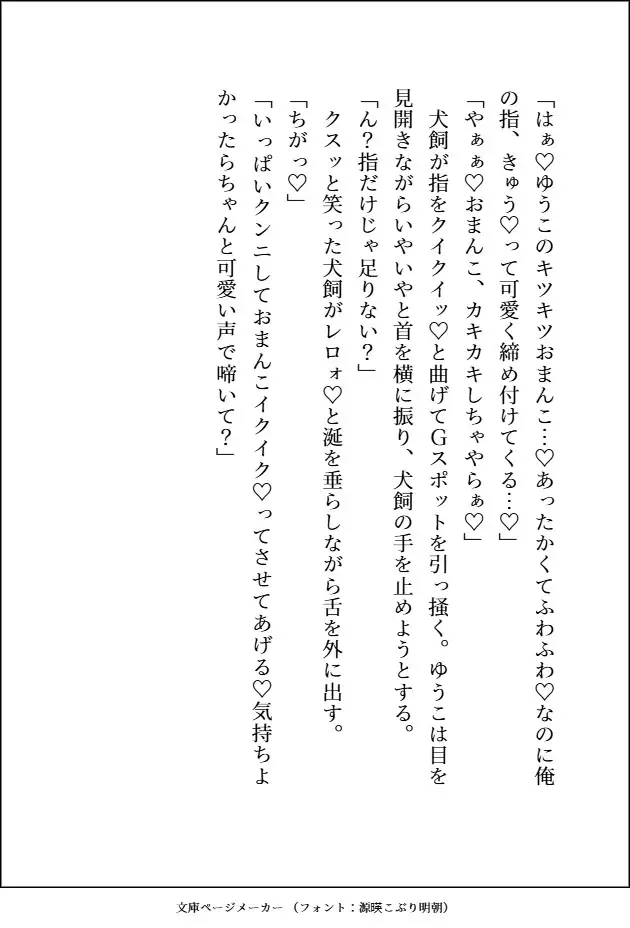 「はぁ♡ゆうこのキツキツおまんこ…♡あったかくてふわふわ♡なのに俺
の指、きゅう♡って可愛く締め付けてくる…♡」
「やぁぁ♡おまんこ、カキカキしちゃやらぁ♡」
　犬飼が指をクイクイッ♡と曲げてGスポットを引っ掻く。ゆうこは目を
見開きながらいやいやと首を横に振り、犬飼の手を止めようとする。
「ん？指だけじゃ足りない？」
　クスッと笑った犬飼がレロォ♡と涎を垂らしながら舌を外に出す。
「ちがっ♡」
「いっぱいクンニしておまんこイクイク♡ってさせてあげる♡気持ちよ
かったらちゃんと可愛い声で啼いて？」
文庫ページメーカー（フォント：源暎こぶり明朝）